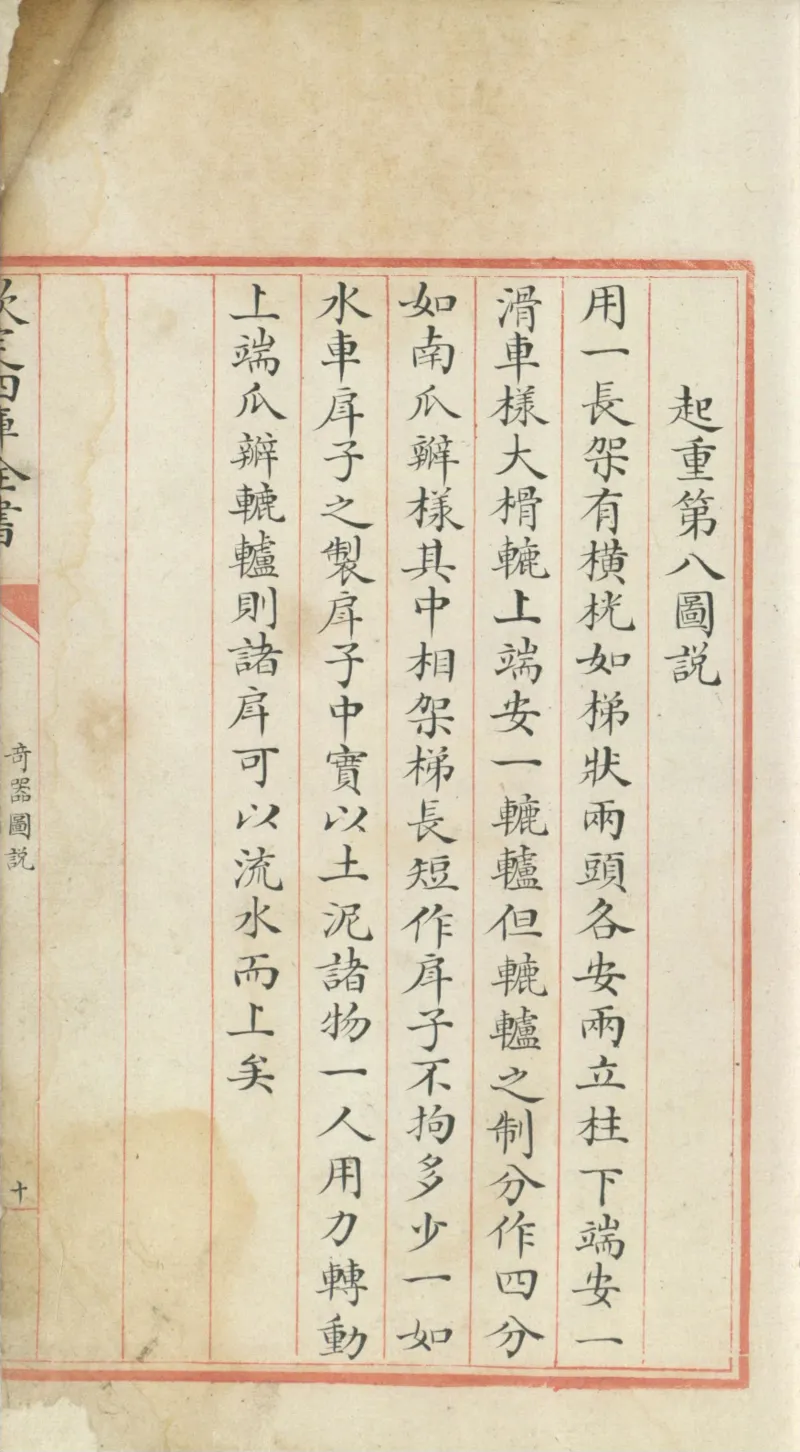 起重第八圖説
用一長架有横桄如梯狀兩頭各安兩立柱下端安一
滑車樣大榾轆上端安一轆轤但轆轤之制分作四分
如南瓜辦樣其中相架梯長短作戽子不拘多少一如
水車戽子之製戽子中實以土泥諸物一人用力轉動
上端瓜辦轆轤則諸戽可以流水而上矣
欽定四庫全書
奇器圖説
十